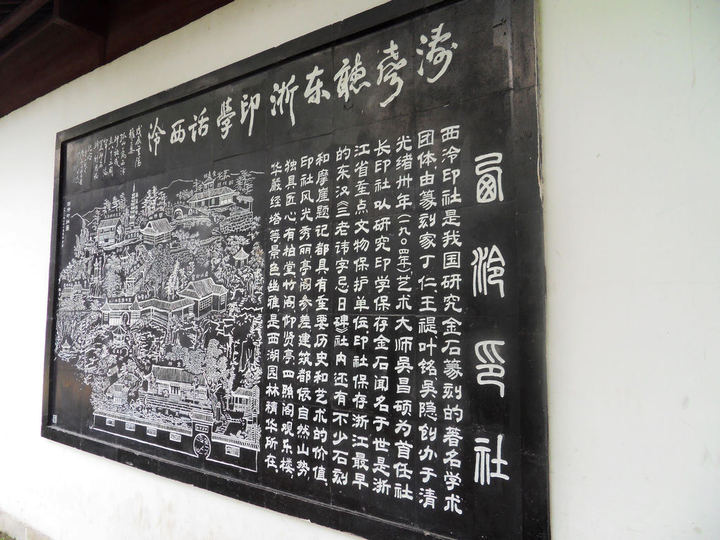 涛聲聽东浙印學话西泠
西泠印社
西泠印社是我国研究金石篆刻的著名学术
团体由篆刻家丁仁王禔叶铭吴隐创办于清
光绪卅年(一九〇四年)艺术大师吴昌硕为首任社
长印社以研究印学保存金石闻名于世是浙
江省重点文物保护单位印社保存浙江最早
的东汉《三老讳字忌日碑》社内还有不少石刻
和摩崖题记都具有重要历史和艺术的价值.
印社风光秀丽亭阁参差建筑都依自然山势,
独具匠心有柏堂竹阁仰贤亭四照阁观乐楼,
华严经塔等景色幽雅是西湖园林精华所在.